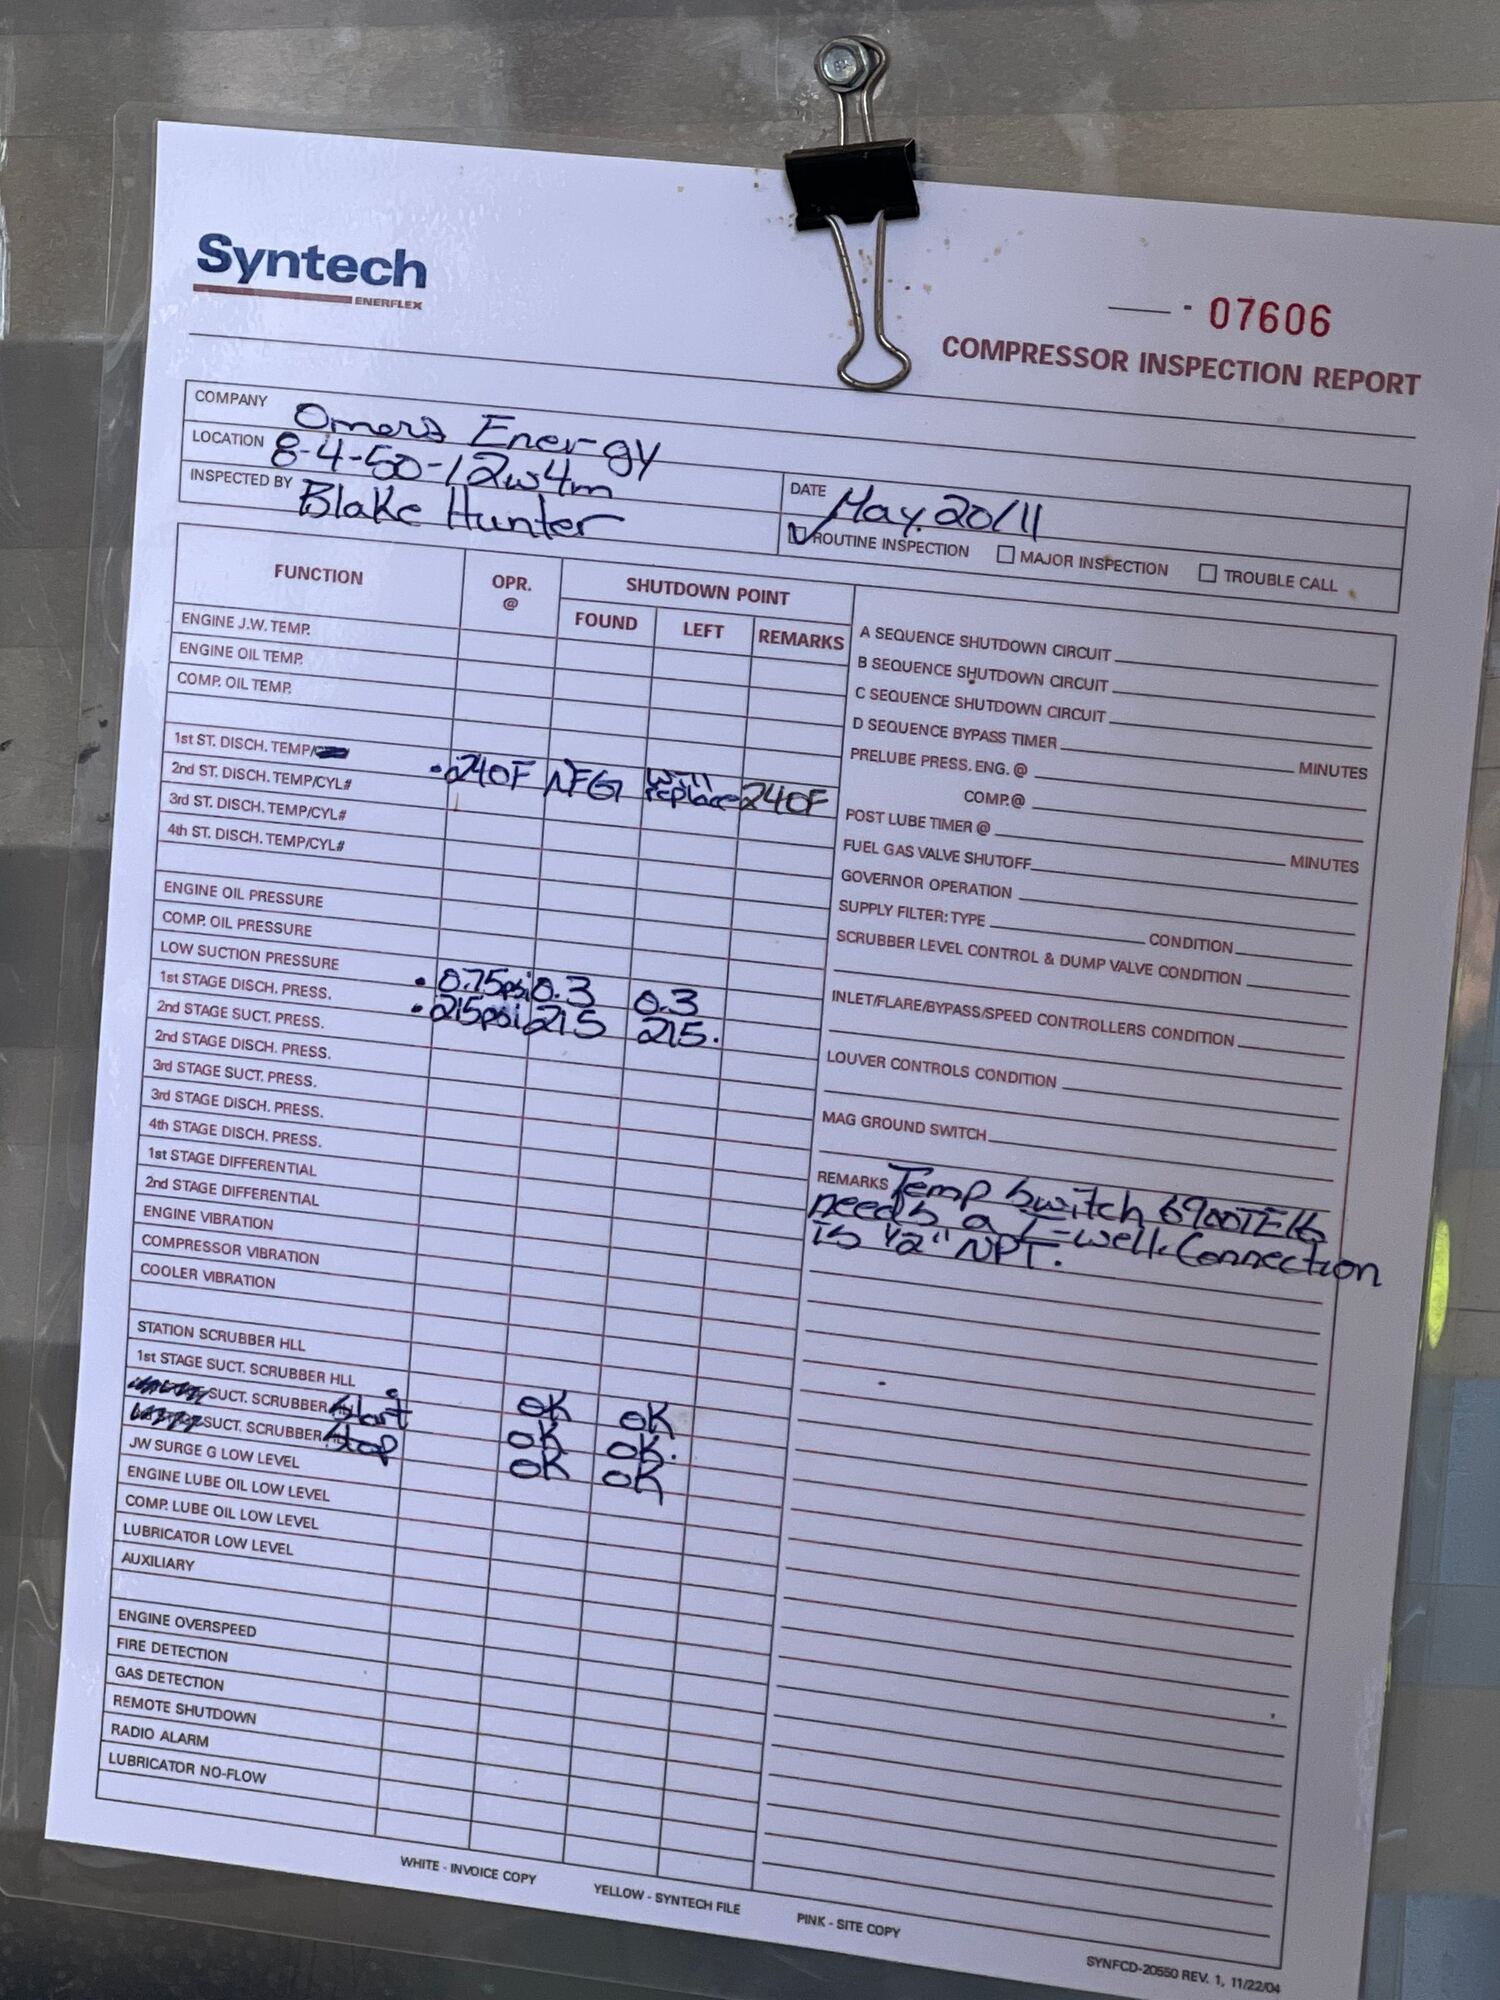 Syntech
ENERFLEX
- 07606
COMPRESSOR INSPECTION REPORT
COMPANY Omers Energy
LOCATION 8-4-50-12w4m
INSPECTED BY Blake Hunter
DATE May 20/11
ROUTINE INSPECTION MAJOR INSPECTION TROUBLE CALL
FUNCTION
OPR. @
SHUTDOWN POINT
FOUND LEFT REMARKS
ENGINE J.W. TEMP.
ENGINE OIL TEMP.
COMP. OIL TEMP.
1st ST. DISCH. TEMP/ 240F NFG will replace 240F
2nd ST. DISCH. TEMP/CYL#
3rd ST. DISCH. TEMP/CYL#
4th ST. DISCH. TEMP/CYL#
ENGINE OIL PRESSURE
COMP. OIL PRESSURE
LOW SUCTION PRESSURE 0.75psi 0.3 0.3
1st STAGE DISCH. PRESS. 215psi 215 215.
2nd STAGE SUCT. PRESS.
2nd STAGE DISCH. PRESS.
3rd STAGE SUCT. PRESS.
3rd STAGE DISCH. PRESS.
4th STAGE DISCH. PRESS.
1st STAGE DIFFERENTIAL
2nd STAGE DIFFERENTIAL
ENGINE VIBRATION
COMPRESSOR VIBRATION
COOLER VIBRATION
STATION SCRUBBER HLL
1st STAGE SUCT. SCRUBBER HLL OK OK
SUCT. SCRUBBER Start OK OK.
SUCT. SCRUBBER Stop OK OK
JW SURGE G LOW LEVEL
ENGINE LUBE OIL LOW LEVEL
COMP. LUBE OIL LOW LEVEL
LUBRICATOR LOW LEVEL
AUXILIARY
ENGINE OVERSPEED
FIRE DETECTION
GAS DETECTION
REMOTE SHUTDOWN
RADIO ALARM
LUBRICATOR NO-FLOW
A SEQUENCE SHUTDOWN CIRCUIT
B SEQUENCE SHUTDOWN CIRCUIT
C SEQUENCE SHUTDOWN CIRCUIT
D SEQUENCE BYPASS TIMER MINUTES
PRELUBE PRESS. ENG. @
COMP.@
POST LUBE TIMER @ MINUTES
FUEL GAS VALVE SHUTOFF
GOVERNOR OPERATION
SUPPLY FILTER: TYPE CONDITION
SCRUBBER LEVEL CONTROL & DUMP VALVE CONDITION
INLET/FLARE/BYPASS/SPEED CONTROLLERS CONDITION
LOUVER CONTROLS CONDITION
MAG GROUND SWITCH
REMARKS Temp Switch
needs a T-well. Connection
is 1/2" NPT.
WHITE - INVOICE COPY YELLOW - SYNTECH FILE PINK - SITE COPY
SYNFCD-20550 REV. 1, 11/22/04